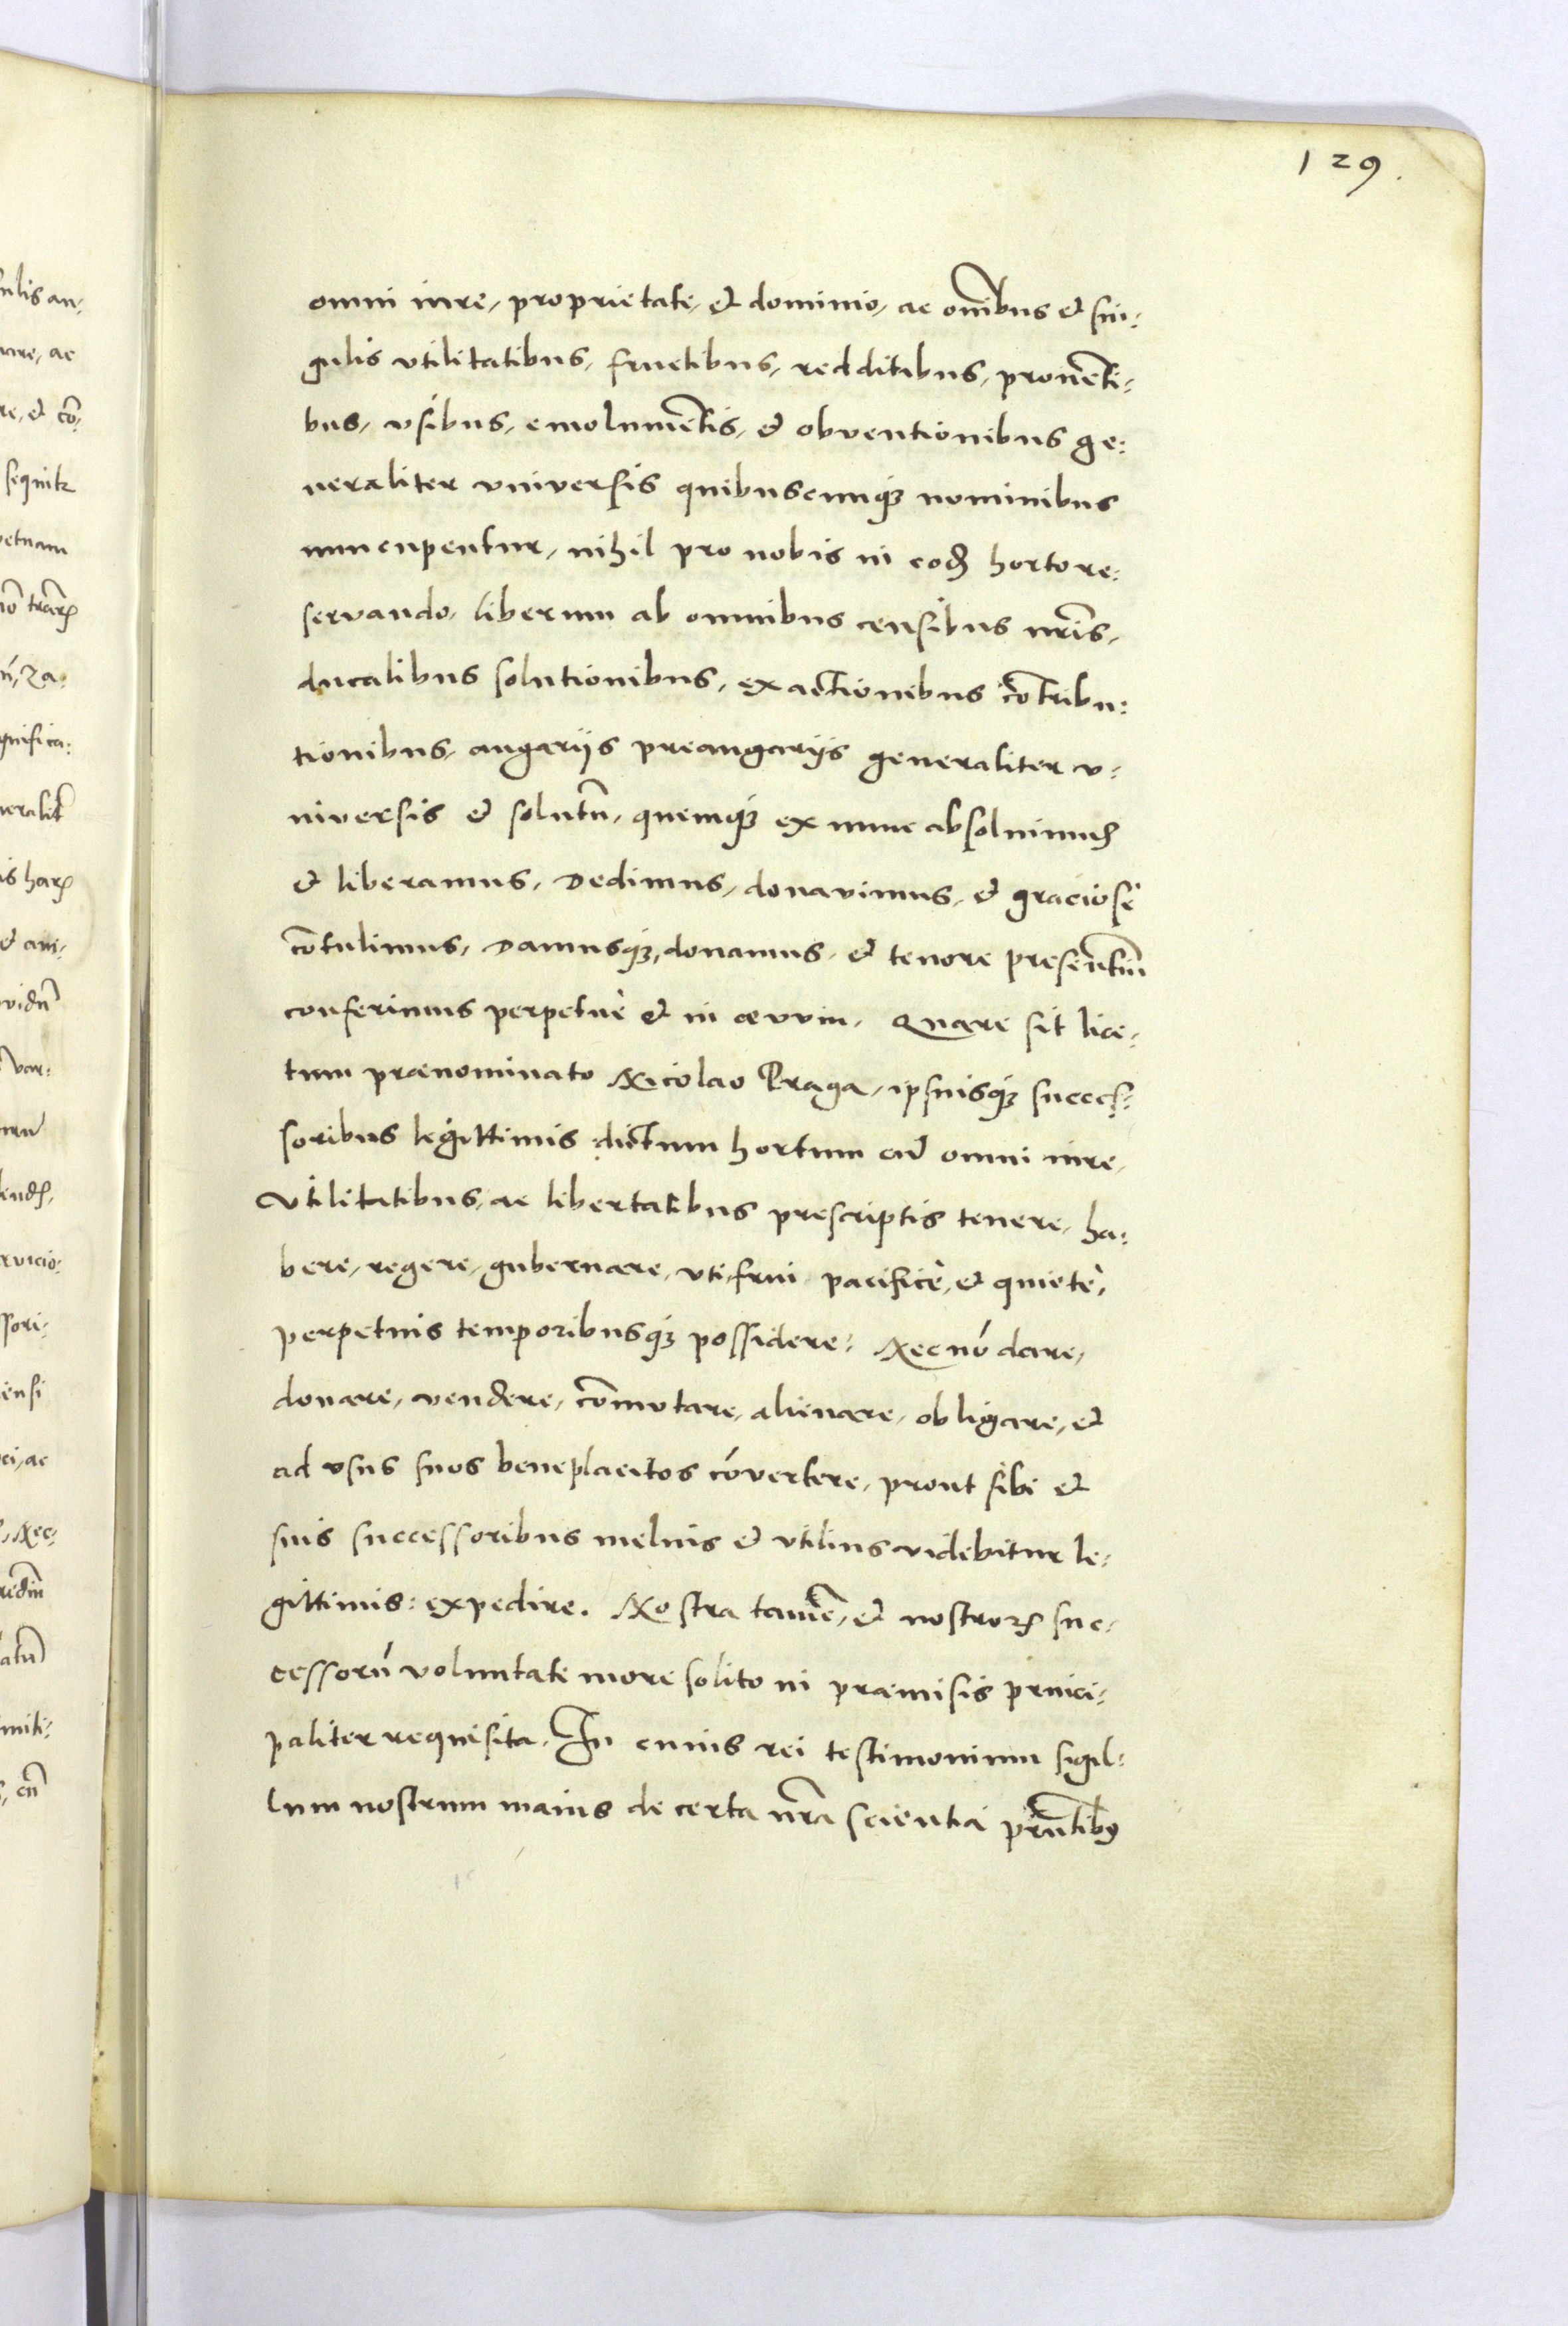 129.
omni iure, proprietate, et dominio, ac om̃ibus et sin:
gulis vtilitatibus, fructibus, redditibus, prouẽti:
bus, vsibus, emolumẽtis, et obventionibus ge:
neraliter vniversis quibuscunqꝫ nominibus
nuncupentur, nihil pro nobis in eodẽ horto re:
servando, liberum ab omnibus censibus nr̃is,
ducalibus solutionibus, exactionibus cõtribu:
tionibus, angariis preangariis generaliter v:
niversis et solutũ, quemqꝫ ex nunc absoluimus
et liberamus, Dedimus, donavimus, et graciosè
cõtulimus, Damusqꝫ, donamus, et tenore presentiũ
conferimus perpetuè et in aevvm, Quare sit lice:
tum praenominato Nicolao Praga, ipsiusqꝫ succes:
soribus legittimis dictum hortum cũ omni iure,
vtilitatibus, ac libertatibus prescriptis tenere, ha:
bere, regere, gubernare, vti, frui pacificè, et quietè,
perpetuis temporibusqꝫ possidere: Nec nõ dare,
donare, vendere, cõmvtare, alienare, obligare, et
ad vsus suos beneplacitos cõvertere, prout sibi et
suis successoribus melius et vtilius videbitur le:
gittimis: expedire. Nostra tamẽ, et nostroꝝ suc:
cessorũ voluntate more solito in praemisis princi:
paliter requisita. In cuius rei testimonium sigil:
lum nostrum maius de certa nr̃a scientia pr̃ntibꝰ